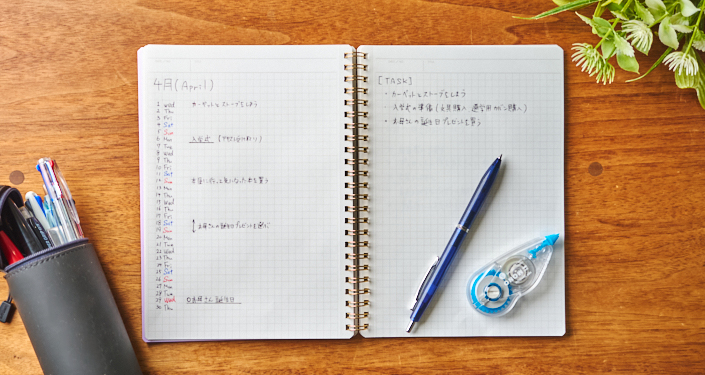 4月(April)
1 wed カーペットとストーブをしまう
2 Thu
3 Fri
4 Sat
5 Sun
6 Mon 入学式
7 Tue
8 Wed
9 Thu
10 Fri
11 Sat
12 Sun 本を買う
13 Mon
14 Tue
15 Wed
16 Thu
17 Fri
18 Sat お母さんの誕生日プレゼントを選ぶ
19 Sun
20 Mon
21 Tue
22 Wed
23 Thu
24 Fri
25 Sat
26 Sun
27 Mon
28 Tue
29 Wed お母さん誕生日
30 Thu
[TASK]
・カーペットとストーブをしまう
・入学式の準備(文具購入 通学用カバン購入)
・お母さんの誕生日プレゼントを買う